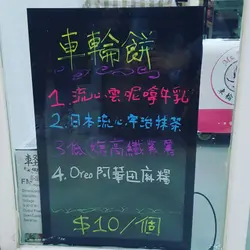 車輪餅
1.流心雲呢嗱牛乳
2.日本流心宇治抹茶
3.低糖高纖紫薯
4.Oreo阿華田麻糬
$10/個